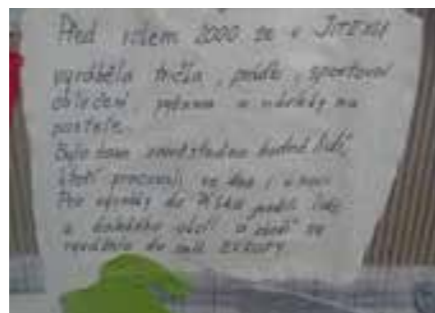 Před rokem 2000 se v JITEXU
vyráběla trička, prádlo, sportovní
oblečení, pyžama a návleky na
postele.
Bylo tam zaměstnáno hodně lidí,
kteří pracovali ve dne i v noci.
Pro výrobky do PÍSKU jezdili lidé
z dalekého okolí a zboží se
vyváželo do celé EVROPY.